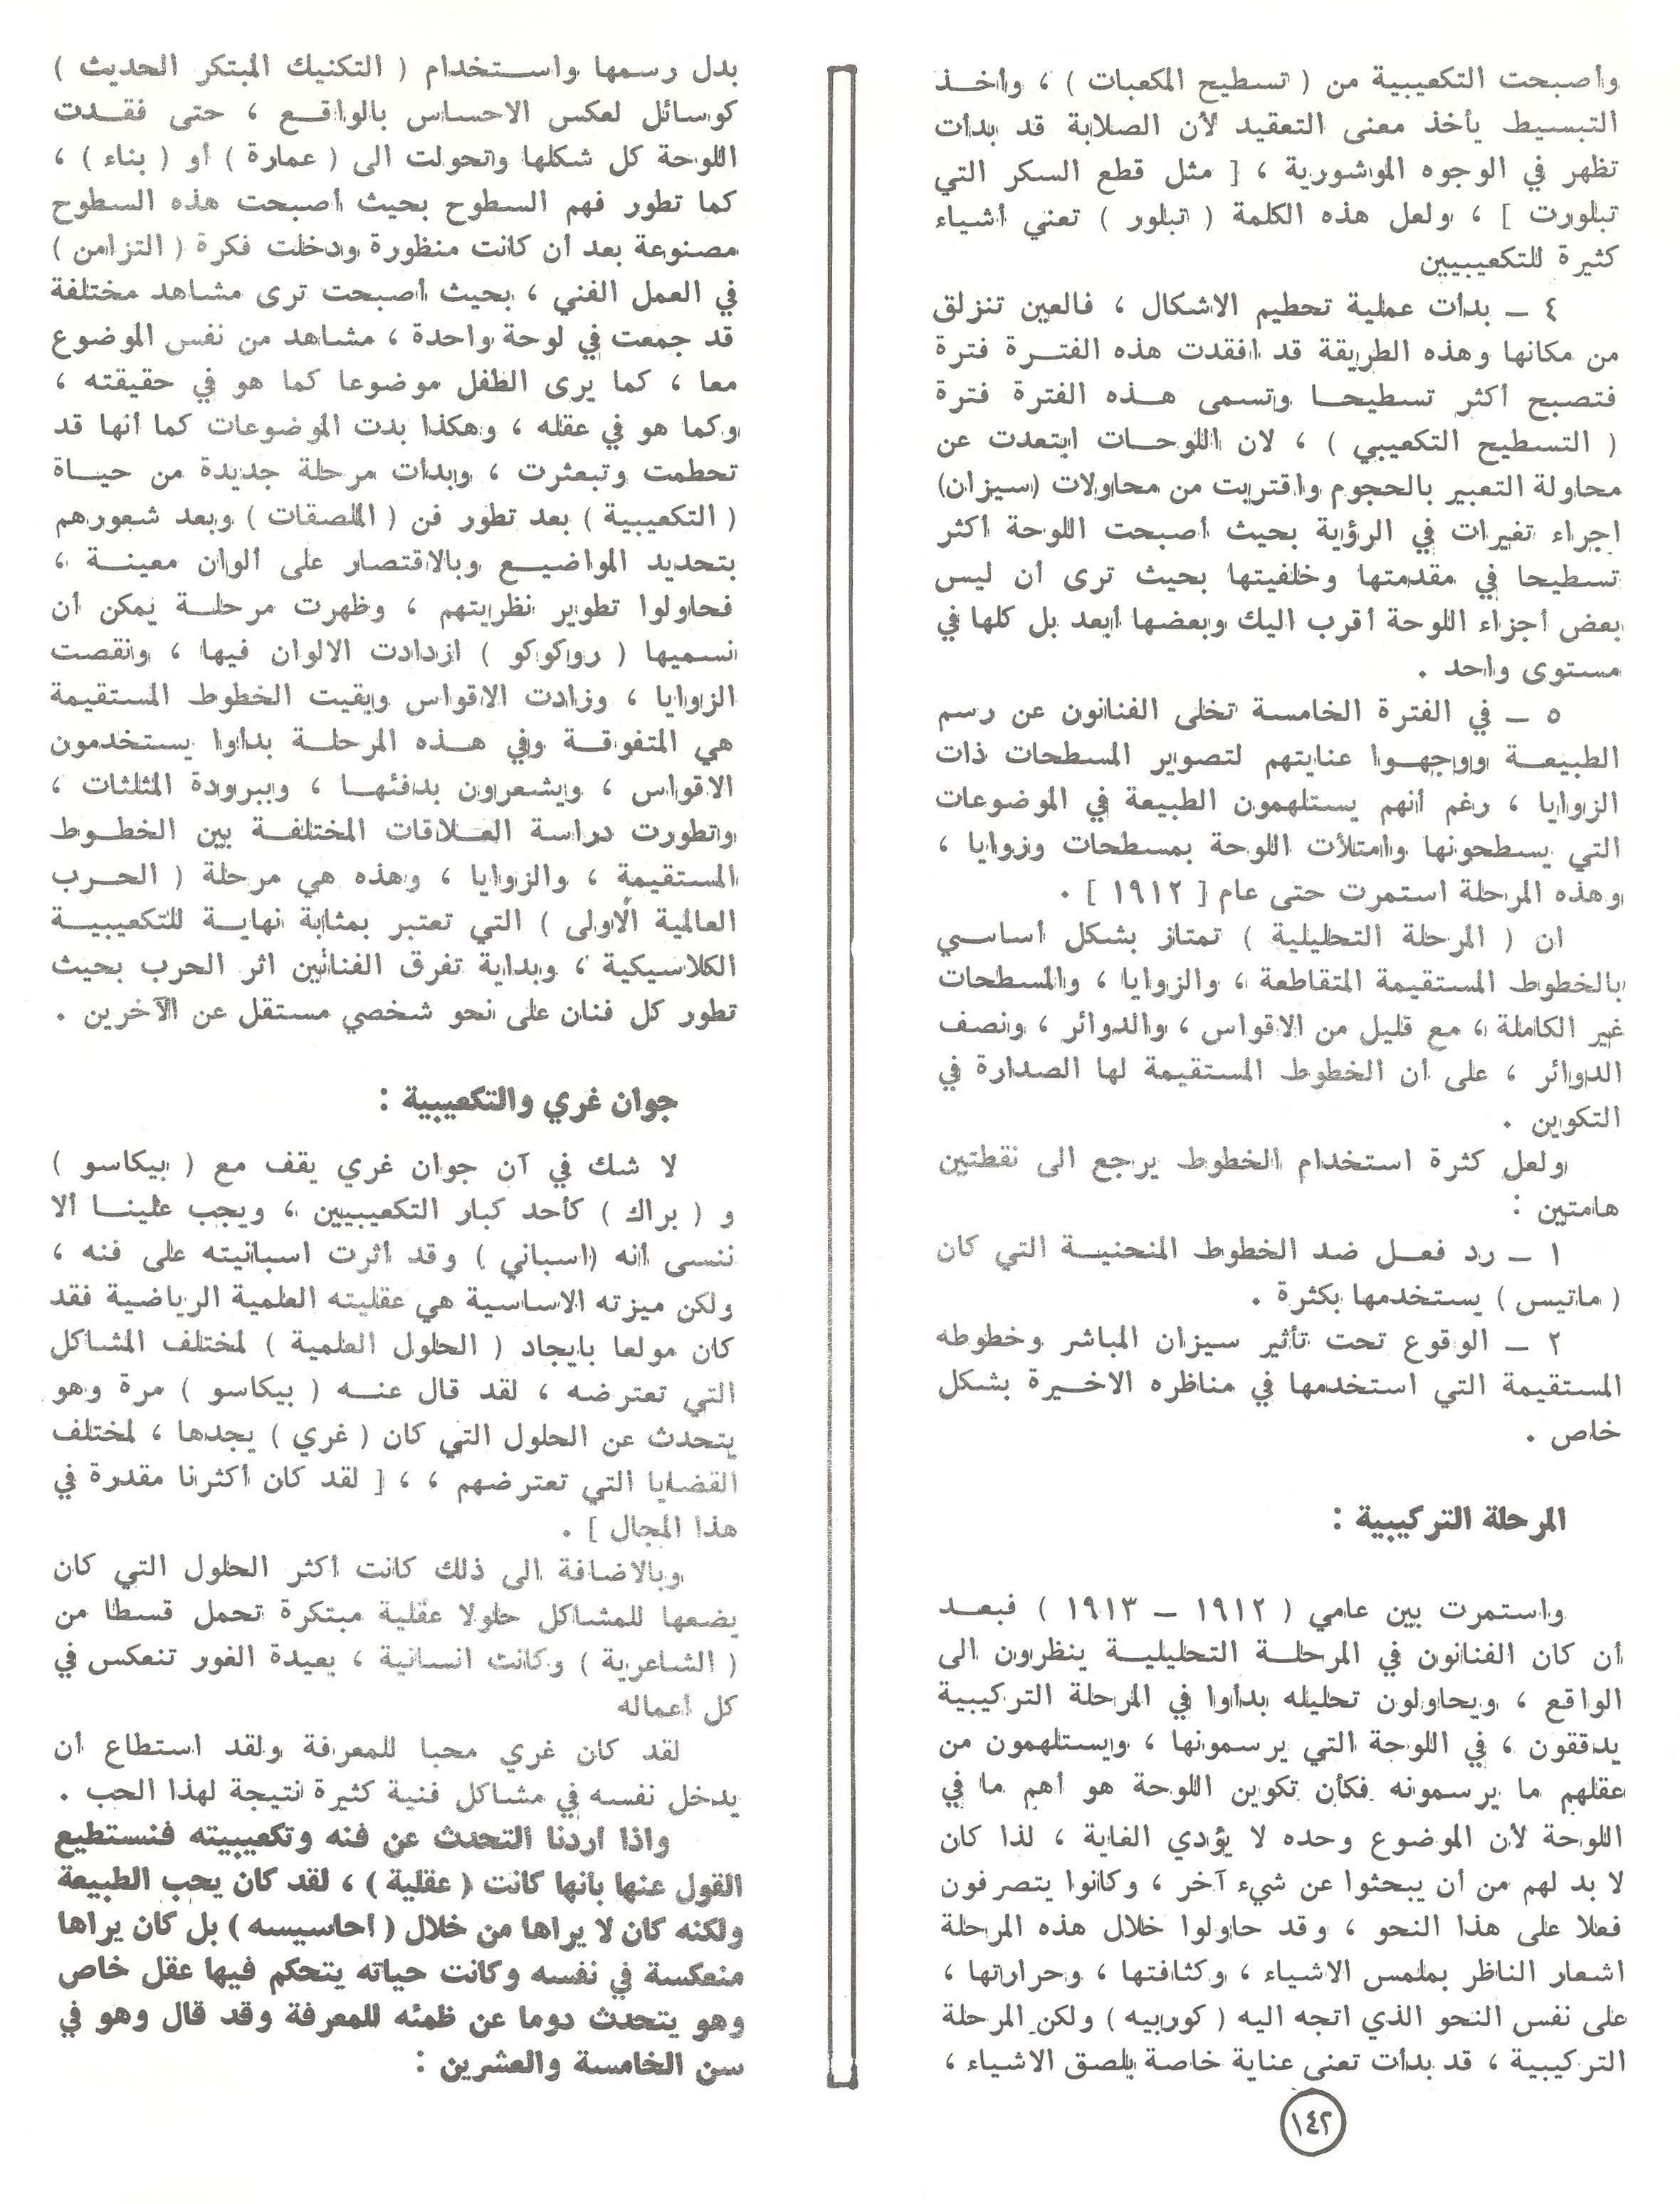 وأصبحت التكعيبية من ( تسطيح المكعبات ) ، وأخذ
التبسيط يأخذ معنى التعقيد لأن الصلابة قد بدأت
تظهر في الوجوه الموشورية ، [ مثل قطع السكر التي
تبلورت ] ، ولعل هذه الكلمة ( تبلور ) تعني أشياء
كثيرة للتكعيبيين
٤ ـ بدأت عملية تحطيم الاشكال ، فالعين تنزلق
من مكانها وهذه الطريقة قد افقدت هذه الفترة فترة
فتصبح أكثر تسطيحا وتسمى هذه الفترة فترة
( التسطيح التكعيبي ) ، لان اللوحات ابتعدت عن
محاولة التعبير بالحجوم واقتربت من محاولات (سيزان)
اجراء تغيرات في الرؤية بحيث أصبحت اللوحة أكثر
تسطيحا في مقدمتها وخلفيتها بحيث ترى أن ليس
بعض أجزاء اللوحة أقرب اليك وبعضها أبعد بل كلها في
مستوى واحد .
٥ ـ في الفترة الخامسة تخلى الفنانون عن رسم
الطبيعة ووجهوا عنايتهم لتصوير المسطحات ذات
الزوايا ، رغم أنهم يستلهمون الطبيعة في الموضوعات
التي يسطحونها وامتلأت اللوحة بمسطحات وزوايا ،
وهذه المرحلة استمرت حتى عام [ ١٩١٢ ] .
ان ( المرحلة التحليلية ) تمتاز بشكل أساسي
بالخطوط المستقيمة المتقاطعة ، والزوايا ، والمسطحات
غير الكاملة ، مع قليل من الاقواس ، والدوائر ، ونصف
الدوائر ، على أن الخطوط المستقيمة لها الصدارة في
التكوين .
ولعل كثرة استخدام الخطوط يرجع الى نقطتين
هامتين :
١ ـ رد فعل ضد الخطوط المنحنية التي كان
( ماتيس ) يستخدمها بكثرة .
٢ ـ الوقوع تحت تأثير سيزان المباشر وخطوطه
المستقيمة التي استخدمها في مناظره الاخيرة بشكل
خاص .
المرحلة التركيبية :
واستمرت بين عامي ( ١٩١٢ ـ ١٩١٣ ) فبعد
أن كان الفنانون في المرحلة التحليلية ينظرون الى
الواقع ، ويحاولون تحليله بدأوا في المرحلة التركيبية
يدققون ، في اللوحة التي يرسمونها ، ويستلهمون من
عقلهم ما يرسمونه فكأن تكوين اللوحة هو أهم ما في
اللوحة لأن الموضوع وحده لا يؤدي الغاية ، لذا كان
لا بد لهم من أن يبحثوا عن شيء آخر ، وكانوا يتصرفون
فعلا على هذا النحو ، وقد حاولوا خلال هذه المرحلة
اشعار الناظر بملمس الاشياء ، وكثافتها ، وحرارتها ،
على نفس النحو الذي اتجه اليه ( كوربيه ) ولكن المرحلة
التركيبية ، قد بدأت تعنى عناية خاصة بلصق الاشياء ،
بدل رسمها واستخدام ( التكنيك المبتكر الحديث )
كوسائل لعكس الاحساس بالواقع ، حتى فقدت
اللوحة كل شكلها وتحولت الى ( عمارة ) أو ( بناء ) ،
كما تطور فهم السطوح بحيث أصبحت هذه السطوح
مصنوعة بعد أن كانت منظورة ودخلت فكرة ( التزامن )
في العمل الفني ، بحيث أصبحت ترى مشاهد مختلفة
قد جمعت في لوحة واحدة ، مشاهد من نفس الموضوع
معا ، كما يرى الطفل موضوعا كما هو في حقيقته ،
وكما هو في عقله ، وهكذا بدت الموضوعات كما أنها قد
تحطمت وتبعثرت ، وبدأت مرحلة جديدة من حياة
( التكعيبية ) بعد تطور فن ( الملصقات ) وبعد شعورهم
بتحديد المواضيع وبالاقتصار على ألوان معينة ،
فحاولوا تطوير نظريتهم ، وظهرت مرحلة يمكن أن
نسميها ( روكوكو ) ازدادت الالوان فيها ، ونقصت
الزوايا ، وزادت الاقواس وبقيت الخطوط المستقيمة
هي المتفوقة وفي هذه المرحلة بدأوا يستخدمون
الاقواس ، ويشعرون بدفئها ، وببرودة المثلثات ،
وتطورت دراسة العلاقات المختلفة بين الخطوط
المستقيمة ، والزوايا ، وهذه هي مرحلة ( الحرب
العالمية الاولى ) التي تعتبر بمثابة نهاية للتكعيبية
الكلاسيكية ، وبداية تفرق الفنانين اثر الحرب بحيث
تطور كل فنان على نحو شخصي مستقل عن الآخرين .
جوان غري والتكعيبية :
لا شك في آن جوان غري يقف مع ( بيكاسو )
و ( براك ) كأحد كبار التكعيبيين ، ويجب علينا ألا
ننسى أنه (اسباني ) وقد أثرت اسبانيته على فنه ،
ولكن ميزته الاساسية هي عقليته العلمية الرياضية فقد
كان مولعا بايجاد ( الحلول العلمية ) لمختلف المشاكل
التي تعترضه ، لقد قال عنه ( بيكاسو ) مرة وهو
يتحدث عن الحلول التي كان ( غري ) يجدها ، لمختلف
القضايا التي تعترضهم ، ، [ لقد كان أكثرنا مقدرة في
هذا المجال ] .
وبالاضافة الى ذلك كانت أكثر الحلول التي كان
يضعها للمشاكل حلولا عقلية مبتكرة تحمل قسطا من
( الشاعرية ) وكانت انسانية ، بعيدة الغور تنعكس في
كل أعماله
لقد كان غري محبا للمعرفة ولقد استطاع أن
يدخل نفسه في مشاكل فنية كثيرة نتيجة لهذا الحب .
واذا اردنا التحدث عن فنه وتكعيبيته فنستطيع
القول عنها بأنها كانت ( عقلية ) ، لقد كان يحب الطبيعة
ولكنه كان لا يراها من خلال ( احاسيسه ) بل كان يراها
منعكسة في نفسه وكانت حياته يتحكم فيها عقل خاص
وهو يتحدث دوما عن ظمئه للمعرفة وقد قال وهو في
سن الخامسة والعشرين :
١٤٢